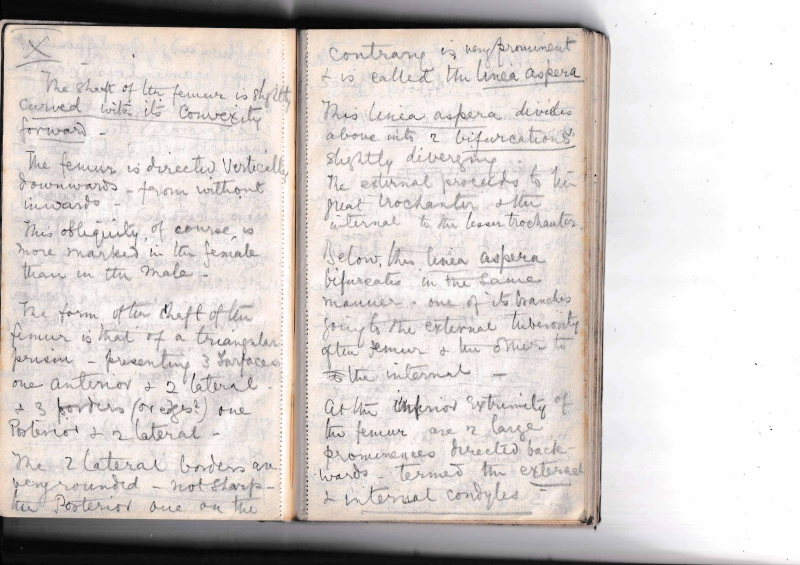 X
The shaft of the femur is slightly
curved with its Convexity
forward -
The femur is directed Vertically
downwards - from without
inwards -
This obliquity, of course, is
more marked in the female
than in the male -
The form of the shaft of the
femur is that of a triangular
prism - presenting 3 surfaces
one anterior & 2 lateral -
& 3 borders (or edges?) one
Posterior & 2 lateral -
The 2 lateral borders are
very rounded - not sharp -
the Posterior one on the
contrary is very prominent
& is called the linea aspera
This linea aspera divides
above into 2 bifurcations
slightly diverging -
The external proceeds to the
great trochanter & the
internal to the lesser trochanter.
Below, this linea aspera
bifurcates in the same
manner - one of its branches
going to the external tuberosity
of the femur & the other to
to the internal -
At the inferior Extremity of
the femur are 2 large
prominences directed back-
wards - termed the external
& internal condyles -